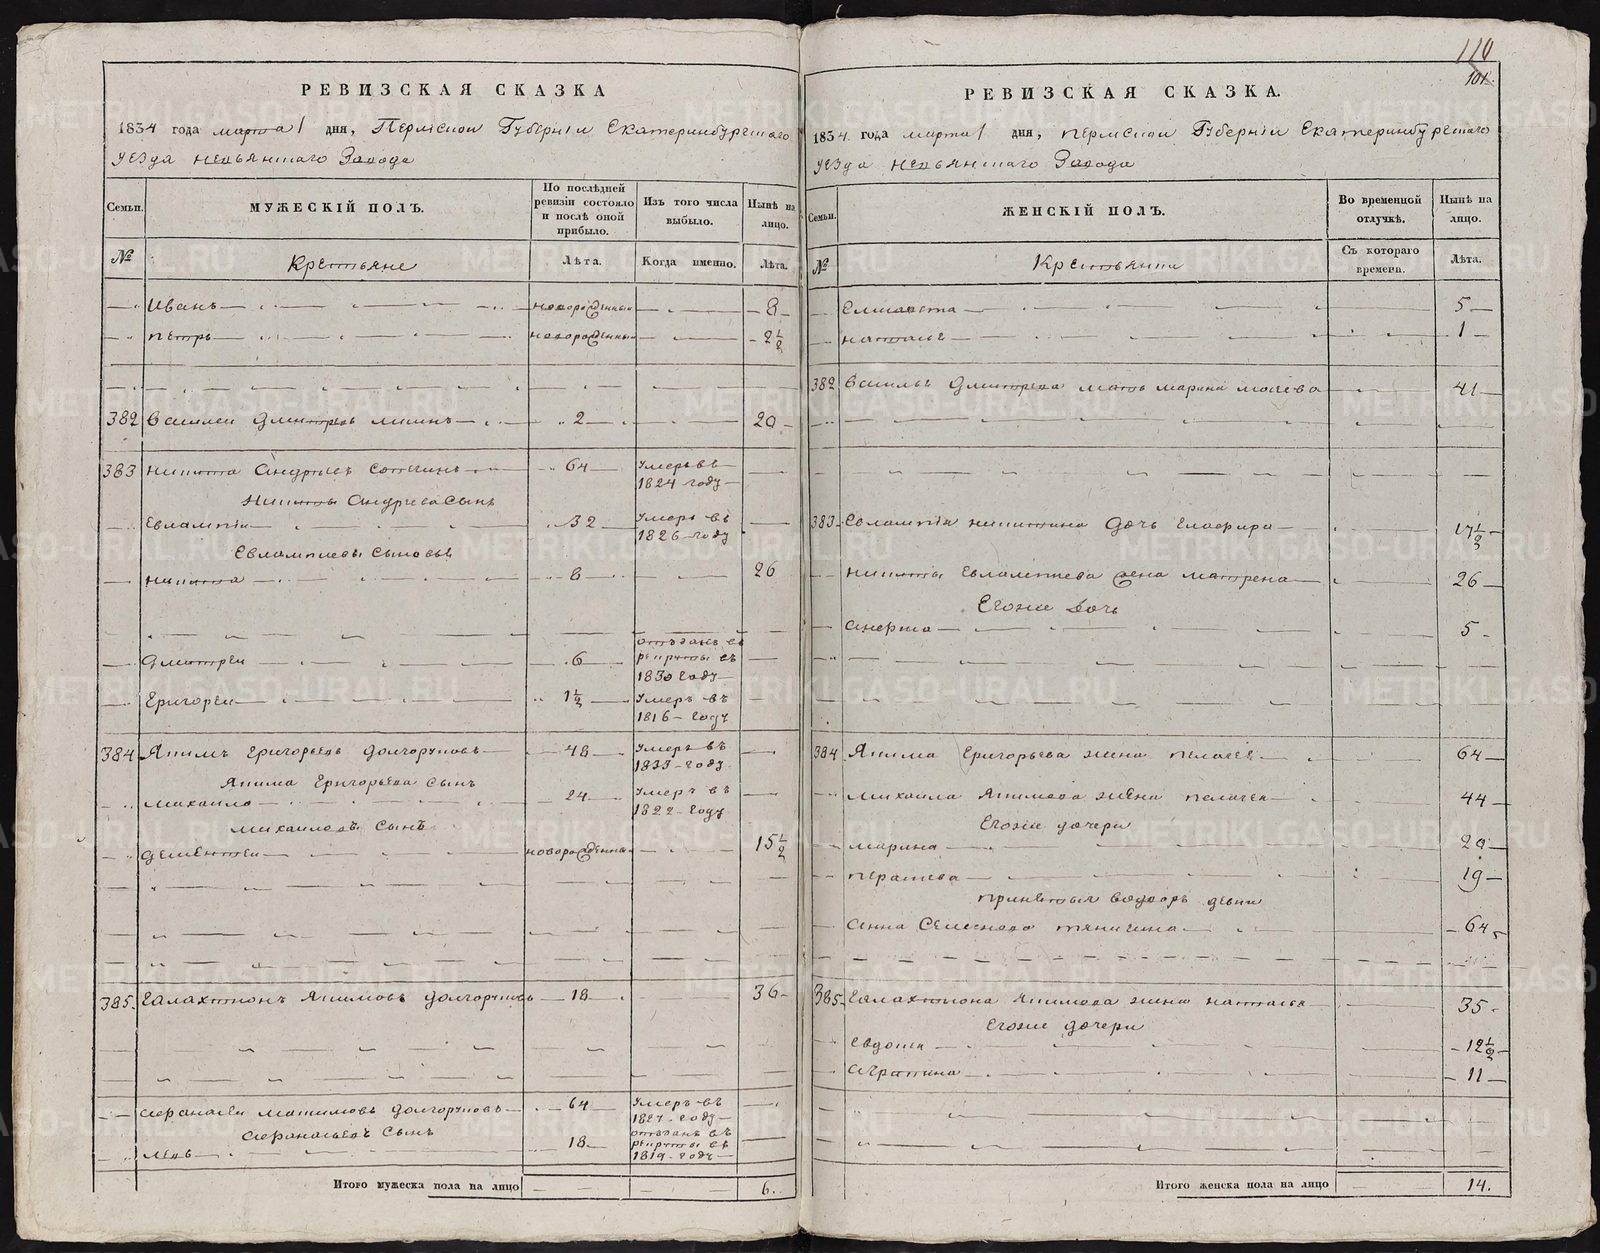 РЕВИЗСКАЯ СКАЗКА
1834 года марта 1 дня, Пермской Губернии Екатеринбургскаго
уезда невьянскаго Завода
Семьи.
МУЖЕСКІЙ ПОЛЪ.
По послѣдней ревизіи состояло и послѣ оной прибыло.
Изъ того числа выбыло.
Нынѣ на лицо.
№
Крестьяне
Лѣта.
Когда именно.
Лѣта.
Иванъ новорожденный 8
петръ новорожденный 2 1/2
382 Василей Дмитревъ 2 20
383 никита Андреевъ 64 Умеръ въ
1824 году
Никиты Андреева сынъ
Евлампіи 32 Умеръ въ
1826 году
Евлампиевы сыновья
никита 8 26
отъданъ въ
Дмитреи 6 рекруты въ
1830 году
Григореи 1 1/2 Умеръ въ
1816 году
384 Якимъ Григорьевъ долгоруковъ 48 Умеръ въ
1833 году
Якима Григорьева сынъ
михаило 24 Умеръ въ
1822 году
михаиловъ сынъ
дементеи новорожденна 15 1/2
385. Галахтионъ Якимовъ долгоруковъ 18 36
Афанасеи долгоруковъ 64 Умеръ въ
1827 году
Афанасьевъ сынъ 18 отъданъ въ
рекруты въ
левъ 1819 году
Итого мужеска пола на лицо 6.
110
101.
РЕВИЗСКАЯ СКАЗКА.
1834. года марта 1 дня, пермской Губерніи Екатеринбургскаго
уезда невьянскаго Завода
Семьи.
ЖЕНСКІЙ ПОЛЪ.
Во временной отлучкѣ.
Нынѣ на лицо.
№
Крестьянки
Съ котораго времени.
Лѣта.
Елизавета 5
наталья 1
382 Василья Дмитрева мать марина 41
383 Евлампія никитина дочь глафира 17 1/2
никиты Евлампиева жена матрена 26
Егоже дочь
5
384 Якима Григорьева жена пелагея 64
михаила Якимова жена пелагея 44
Егоже дочери
марина 20
19
Анна Семенова 64
385 Галахтиона Якимова жена наталья 35
Егоже дочери
Евдокия 12 1/2
Аграпина 11
Итого женска пола на лицо 14.
METRIKI.GASO-URAL.RU